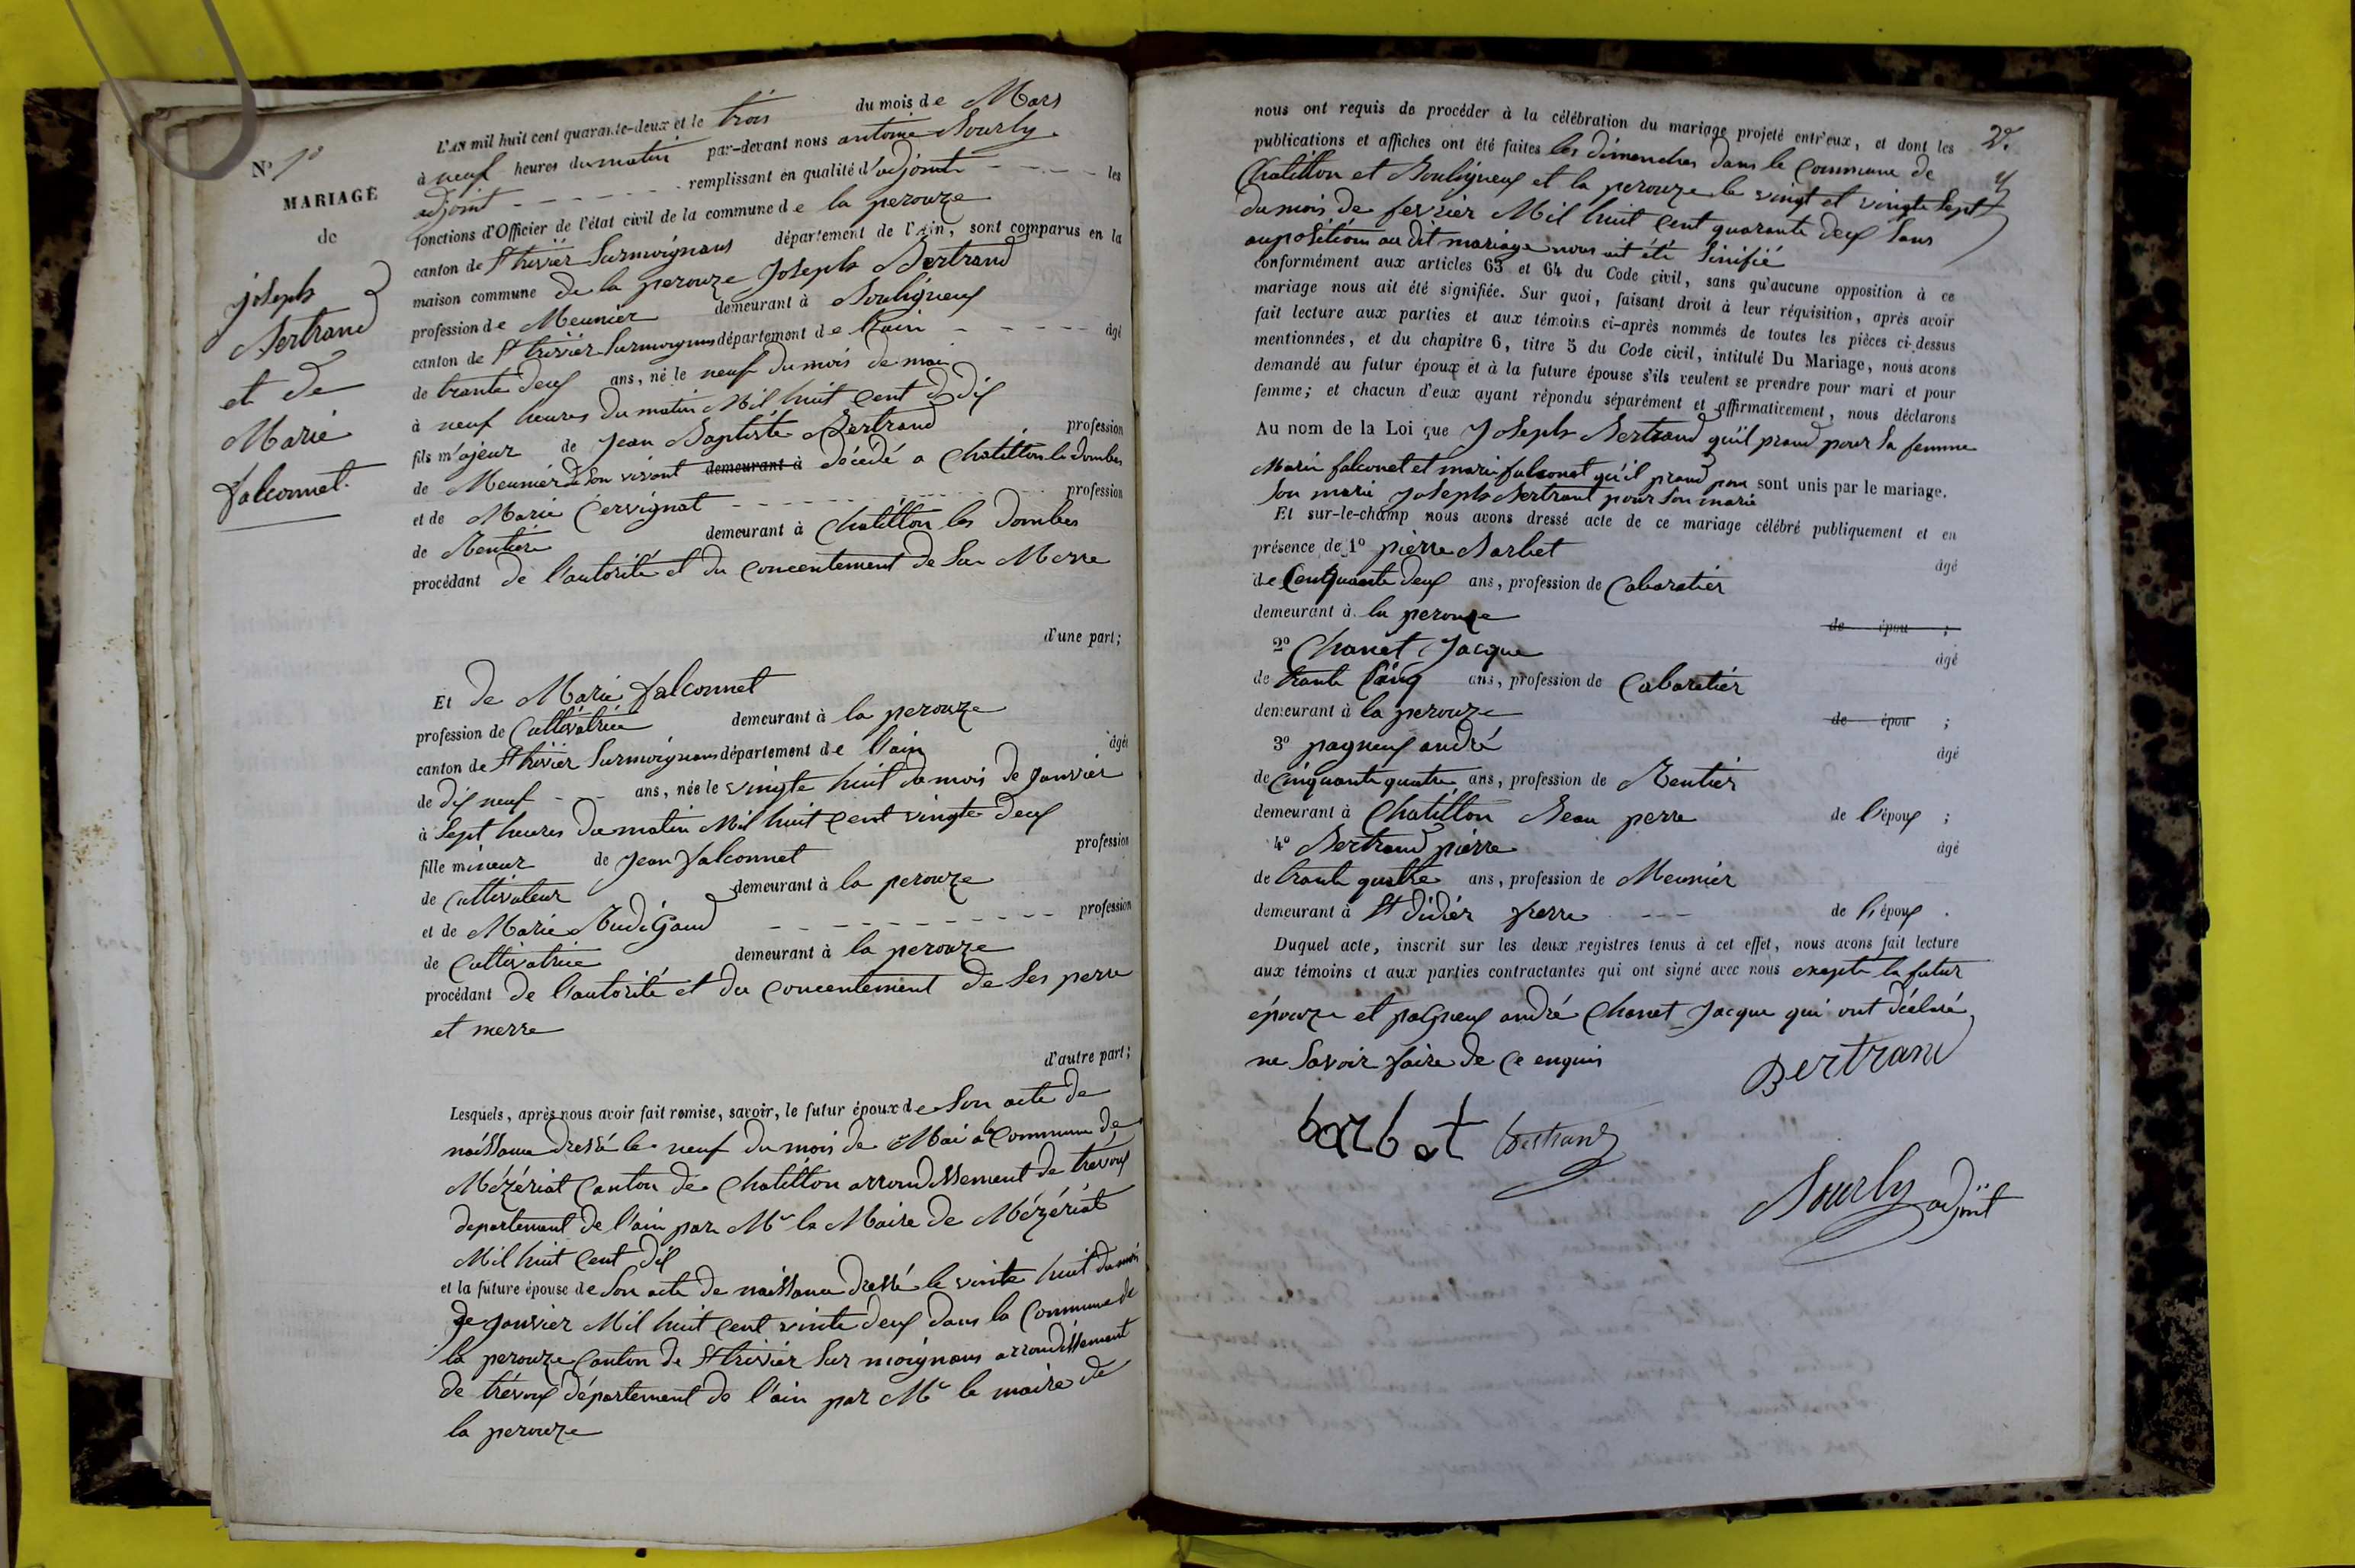 N° 1°
MARIAGE
de
joseph
Bertrand
et de
Marie
falconnet.
L'AN mil huit cent quarante-deux et le trois du mois de Mars
à neuf heures du matin par-devant nous antoine Sourly
adjoint remplissant en qualité d'adjoint les
fonctions d'Officier de l'état civil de la commune de la perouze
canton de St trivier Surmoignans département de l'Ain, sont comparus en la
maison commune de la perouze Joseph Bertrand
profession de Meunier demeurant à Bouligneux
canton de St trivier Surmoignans département de l'ain âgé
de trante deux ans, né le neuf du mois de mai
à neuf heures du matin Mil huit Cent dix
fils majeur de Jean Baptiste Bertrand profession
de Meunier de Son vivant demeurant à décédé a Chatillon le dombes
et de Marie Cervignat profession
de Rentière demeurant à Chatillon les Dombes
procédant de l'autorité et du Concentement de Sa Merre
d'une part;
Et de Marie falconnet
profession de Cultivatrice demeurant à la perouze
canton de St trivier Surmoignans département de l'ain âgée
de dix neuf ans, née le vingte huit du mois de Janvier
à Sept heures du matin Mil huit Cent vingte deux
fille mineur de Jean falconnet profession
de Cultivateur demeurant à la perouze
et de Marie Rudigaud profession
de Cultivatrice demeurant à la perouze
procédant de l'autorité et du Concentement de Ses perre
et merre
d'autre part;
Lesquels, après nous avoir fait remise, savoir, le futur époux de Son acte de
naissance dressé le neuf du mois de Mai a la Commune de
Mézériat Canton de Chatillon arrondissement de trevoux
departement de l'ain par Mr le Maire de Mézériat
Mil huit Cent dix
et la future épouse de Son acte de naissance dressé le vinte huit du mois
de Janvier Mil huit Cent vinte deux dans la Commune de
la perouze Canton de St trivier Sur moignans arrondissement
de trévoux département de l'ain par Mr le maire de
la perouze
nous ont requis de procéder à la célébration du mariage projeté entr'eux, et dont les
publications et affiches ont été faites les dimanches dans le Commune de
Chatillon et Bouligneux et la perouze le vingt et vingte Sept
du mois de fevrier Mil huit Cent quarante deux Sans
auposition au dit mariage nous ait été Sinifié
conformément aux articles 63 et 64 du Code civil, sans qu'aucune opposition à ce
mariage nous ait été signifiée. Sur quoi, faisant droit à leur réquisition, après avoir
fait lecture aux parties et aux témoins ci-après nommés de toutes les pièces ci-dessus
mentionnées, et du chapitre 6, titre 5 du Code civil, intitulé Du Mariage, nous avons
demandé au futur époux et à la future épouse s'ils veulent se prendre pour mari et pour
femme; et chacun d'eux ayant répondu séparément et affirmativement, nous déclarons
Au nom de la Loi que Joseph Bertrand qu'il prand pour Sa femme
Marie falconet et marie falconet qu'il prand pour sont unis par le mariage.
Son mari Joseph Bertrant pour Son marie
Et sur-le-champ nous avons dressé acte de ce mariage célébré publiquement et en
présence de 1° pierre Barbet âgé
de Cenquante deux ans, profession de Cabaratier
demeurant à la perouze de épou ;
2° Chanet Jacque âgé
de trante Cinq ans, profession de Cabaretier
demeurant à la perouze de épou ;
3° pagneux andré âgé
de Cinquante quatre ans, profession de Rentier
demeurant à Chatillon Beau perre de l'époux ;
4° Bertrand pierre âgé
de trante quatre ans, profession de Meunier
demeurant à St didier frerre de l'époux .
Duquel acte, inscrit sur les deux registres tenus à cet effet, nous avons fait lecture
aux témoins et aux parties contractantes qui ont signé avec nous exepté la futur
épouze et pagneux andré Chanet Jacque qui ont déclaré
ne Savoir faire de Ce enquis
Bertrand
barbet bertrand
Sourly adjoint